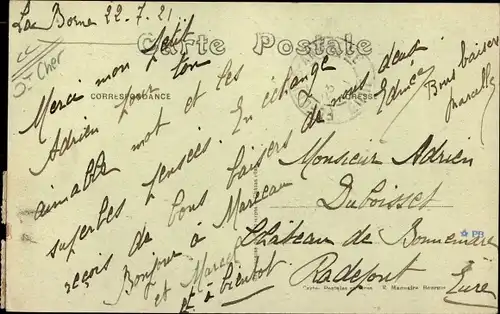 La Borne 22.7.21
Carte Postale
CORRESPONDANCE
ADRESSE
Cher
Merci mon petit
Adrien pour ton
aimable mot et les
superbes pensées. En échange
reçois de bons baisers de nous deux.
Bonjour à Marceau
et Marcel
et à bientôt
Bons baisers
Marcelle
Monsieur Adrien
Duboisset
Château de Bonnemare
Radepont
Eure
PB